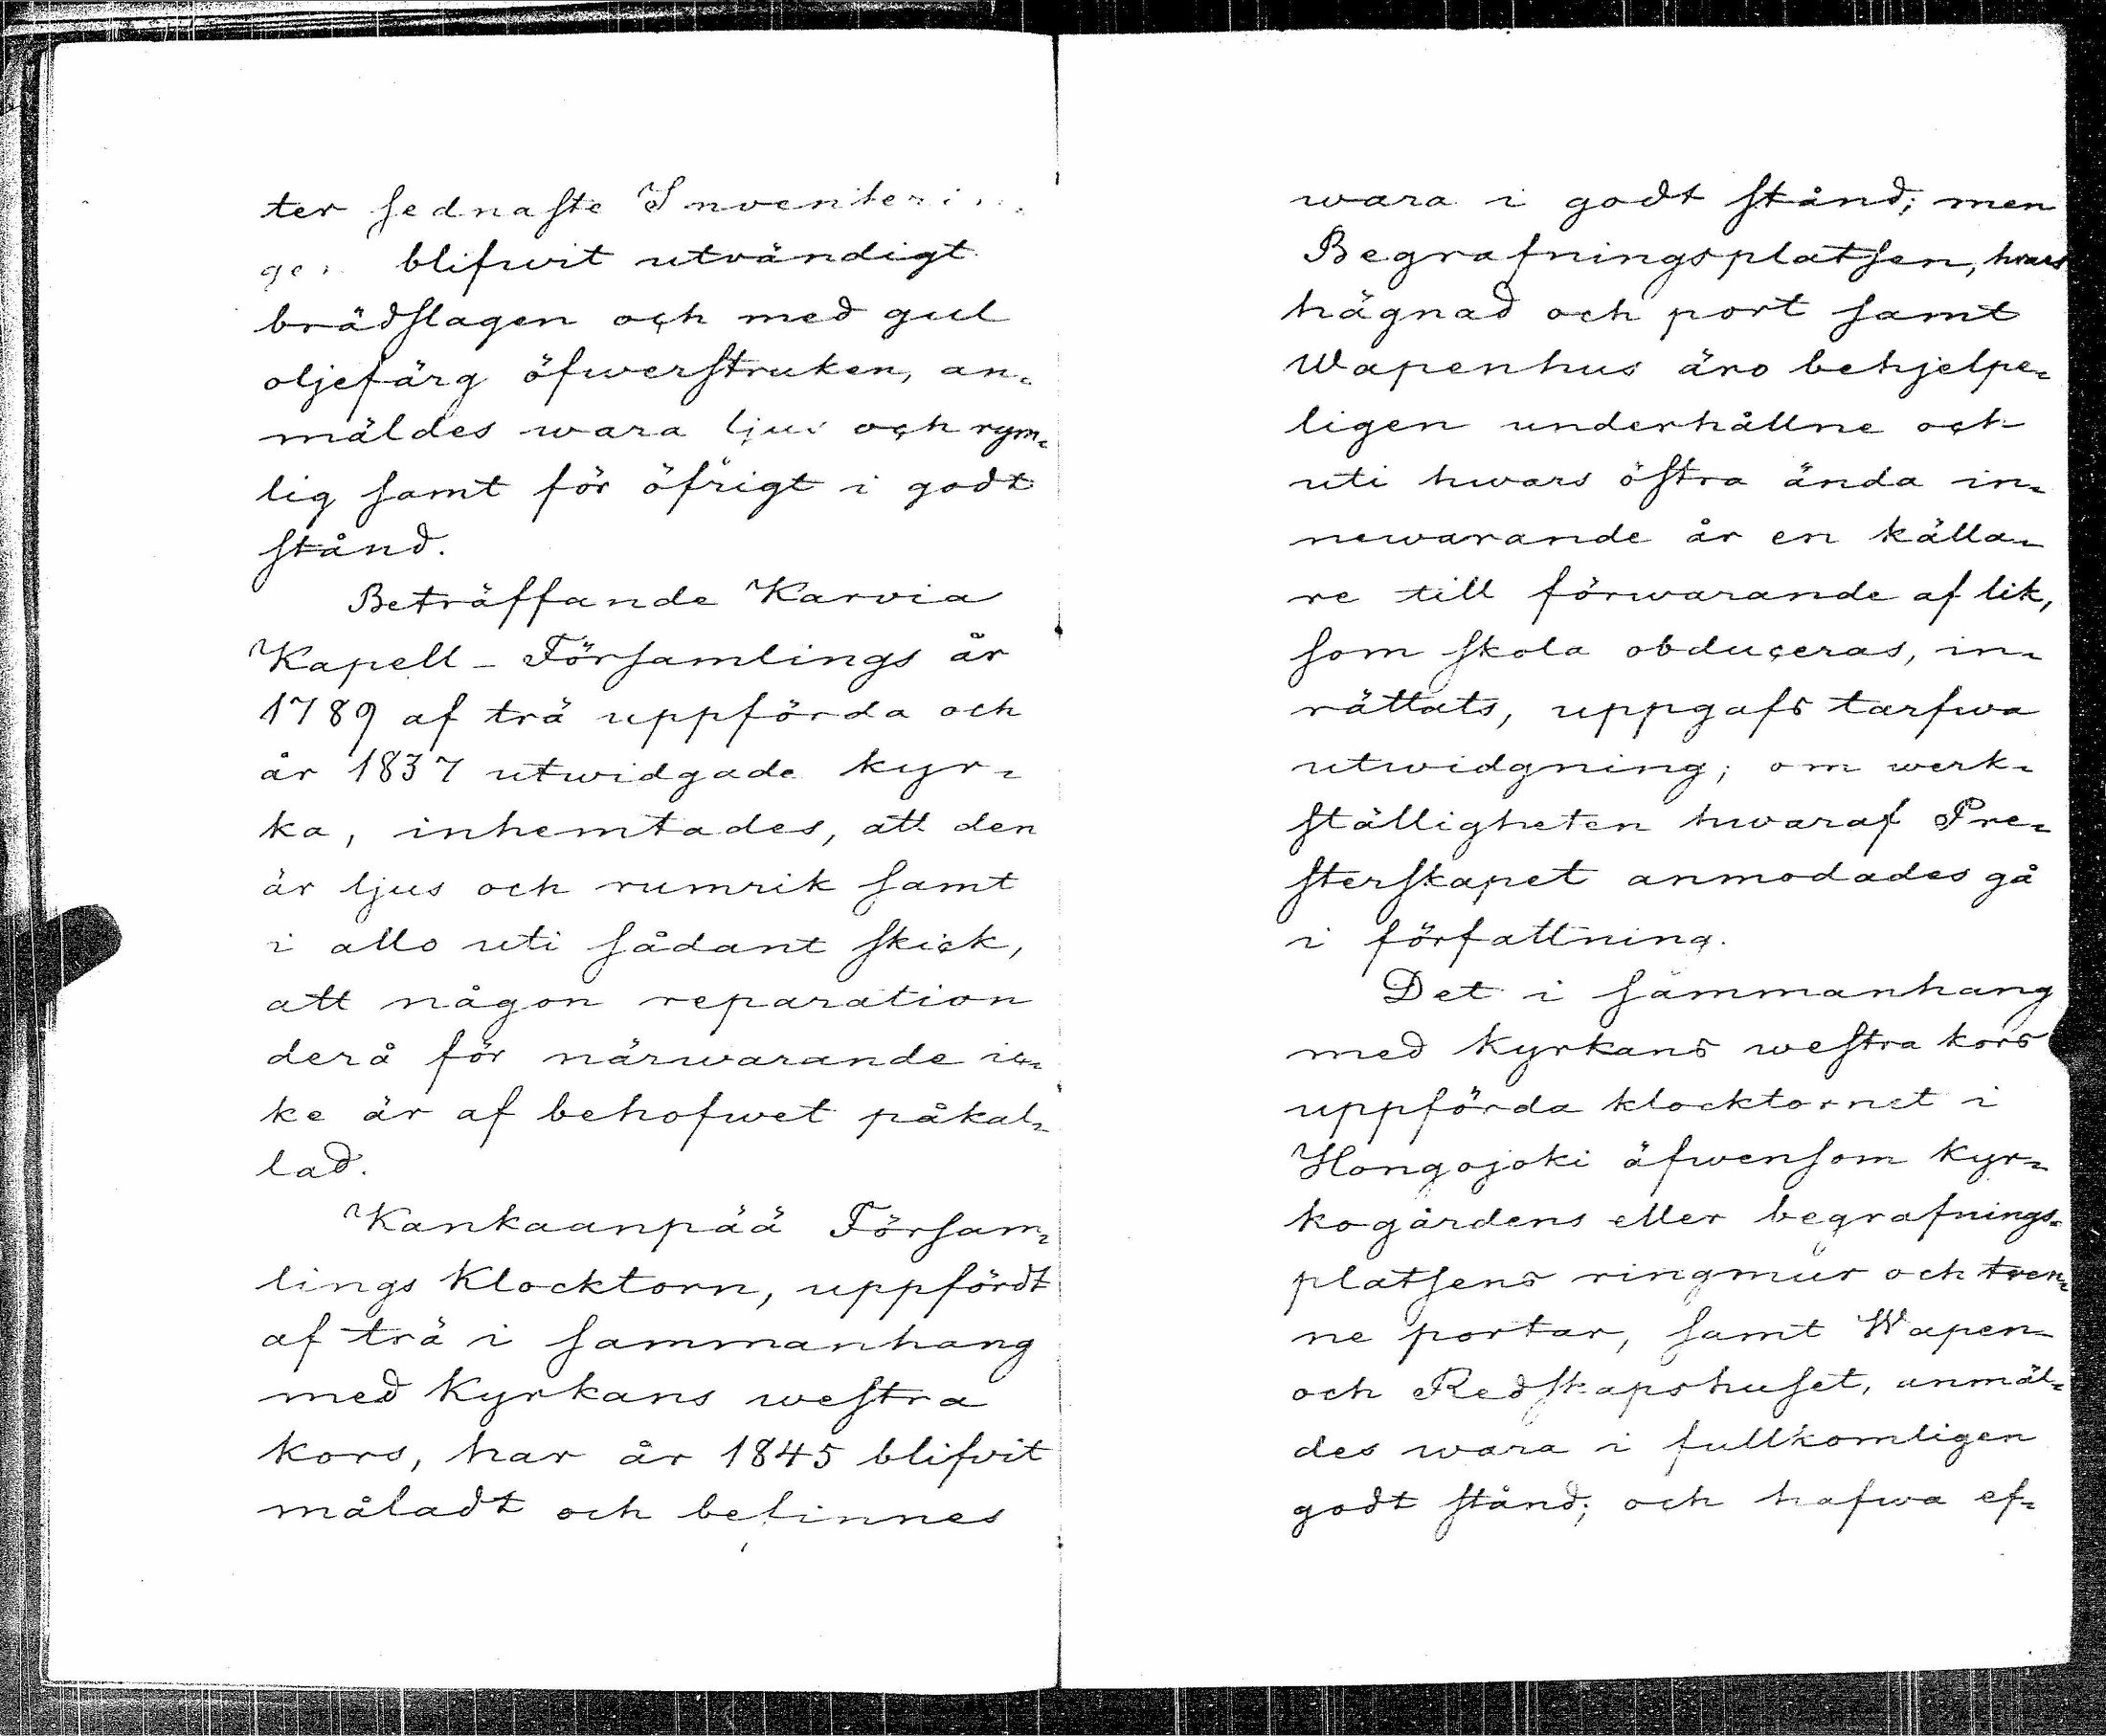 ter sednaste Inventerin
gen blifwit utvändigt
brädslagen och med gul
oljefärg öfwerstruken, an=
mäldes wara ljus och rym=
lig samt för öfrigt i godt
stånd.
Beträffande Karvia
Kapell-Församlings år
1789 af trä uppförda och
år 1837 utwidgade kyr=
ka, inhemtades, att den
är ljus och rumrik samt
i allo uti sådant skick,
att någon reparation
derå för närwarande ic=
ke är af behofwet påkal=
lad.
Kankaanpää Försam=
lings Klocktorn, uppfördt
af trä i sammanhang
med Kyrkans westra
kors, har år 1845 blifvit
måladt och befinnes
wara i godt stånd; men
Begrafningsplatsen, hvars
hägnad och port samt
Wapenhus äro behjelpe=
ligen underhållne och
uti hwars östra ända in=
newarande år en källa=
re till förwarande af lik,
som skola obduceras, in=
rättats, uppgafs tarfwa
utwidgning; om werk=
ställigheten hwaraf Pre=
sterskapet anmodades gå
i författning.
Det i sammanhang
med Kyrkans westra kors
uppförda klocktornet i
Hongojoki äfwensom Kyr=
kogårdens eller begrafnings=
platsens ringmur och tven=
ne portar, samt Wapen=
och Redskapshuset, anmäl=
des wara i fullkomligen
godt stånd; och hafwa ef=